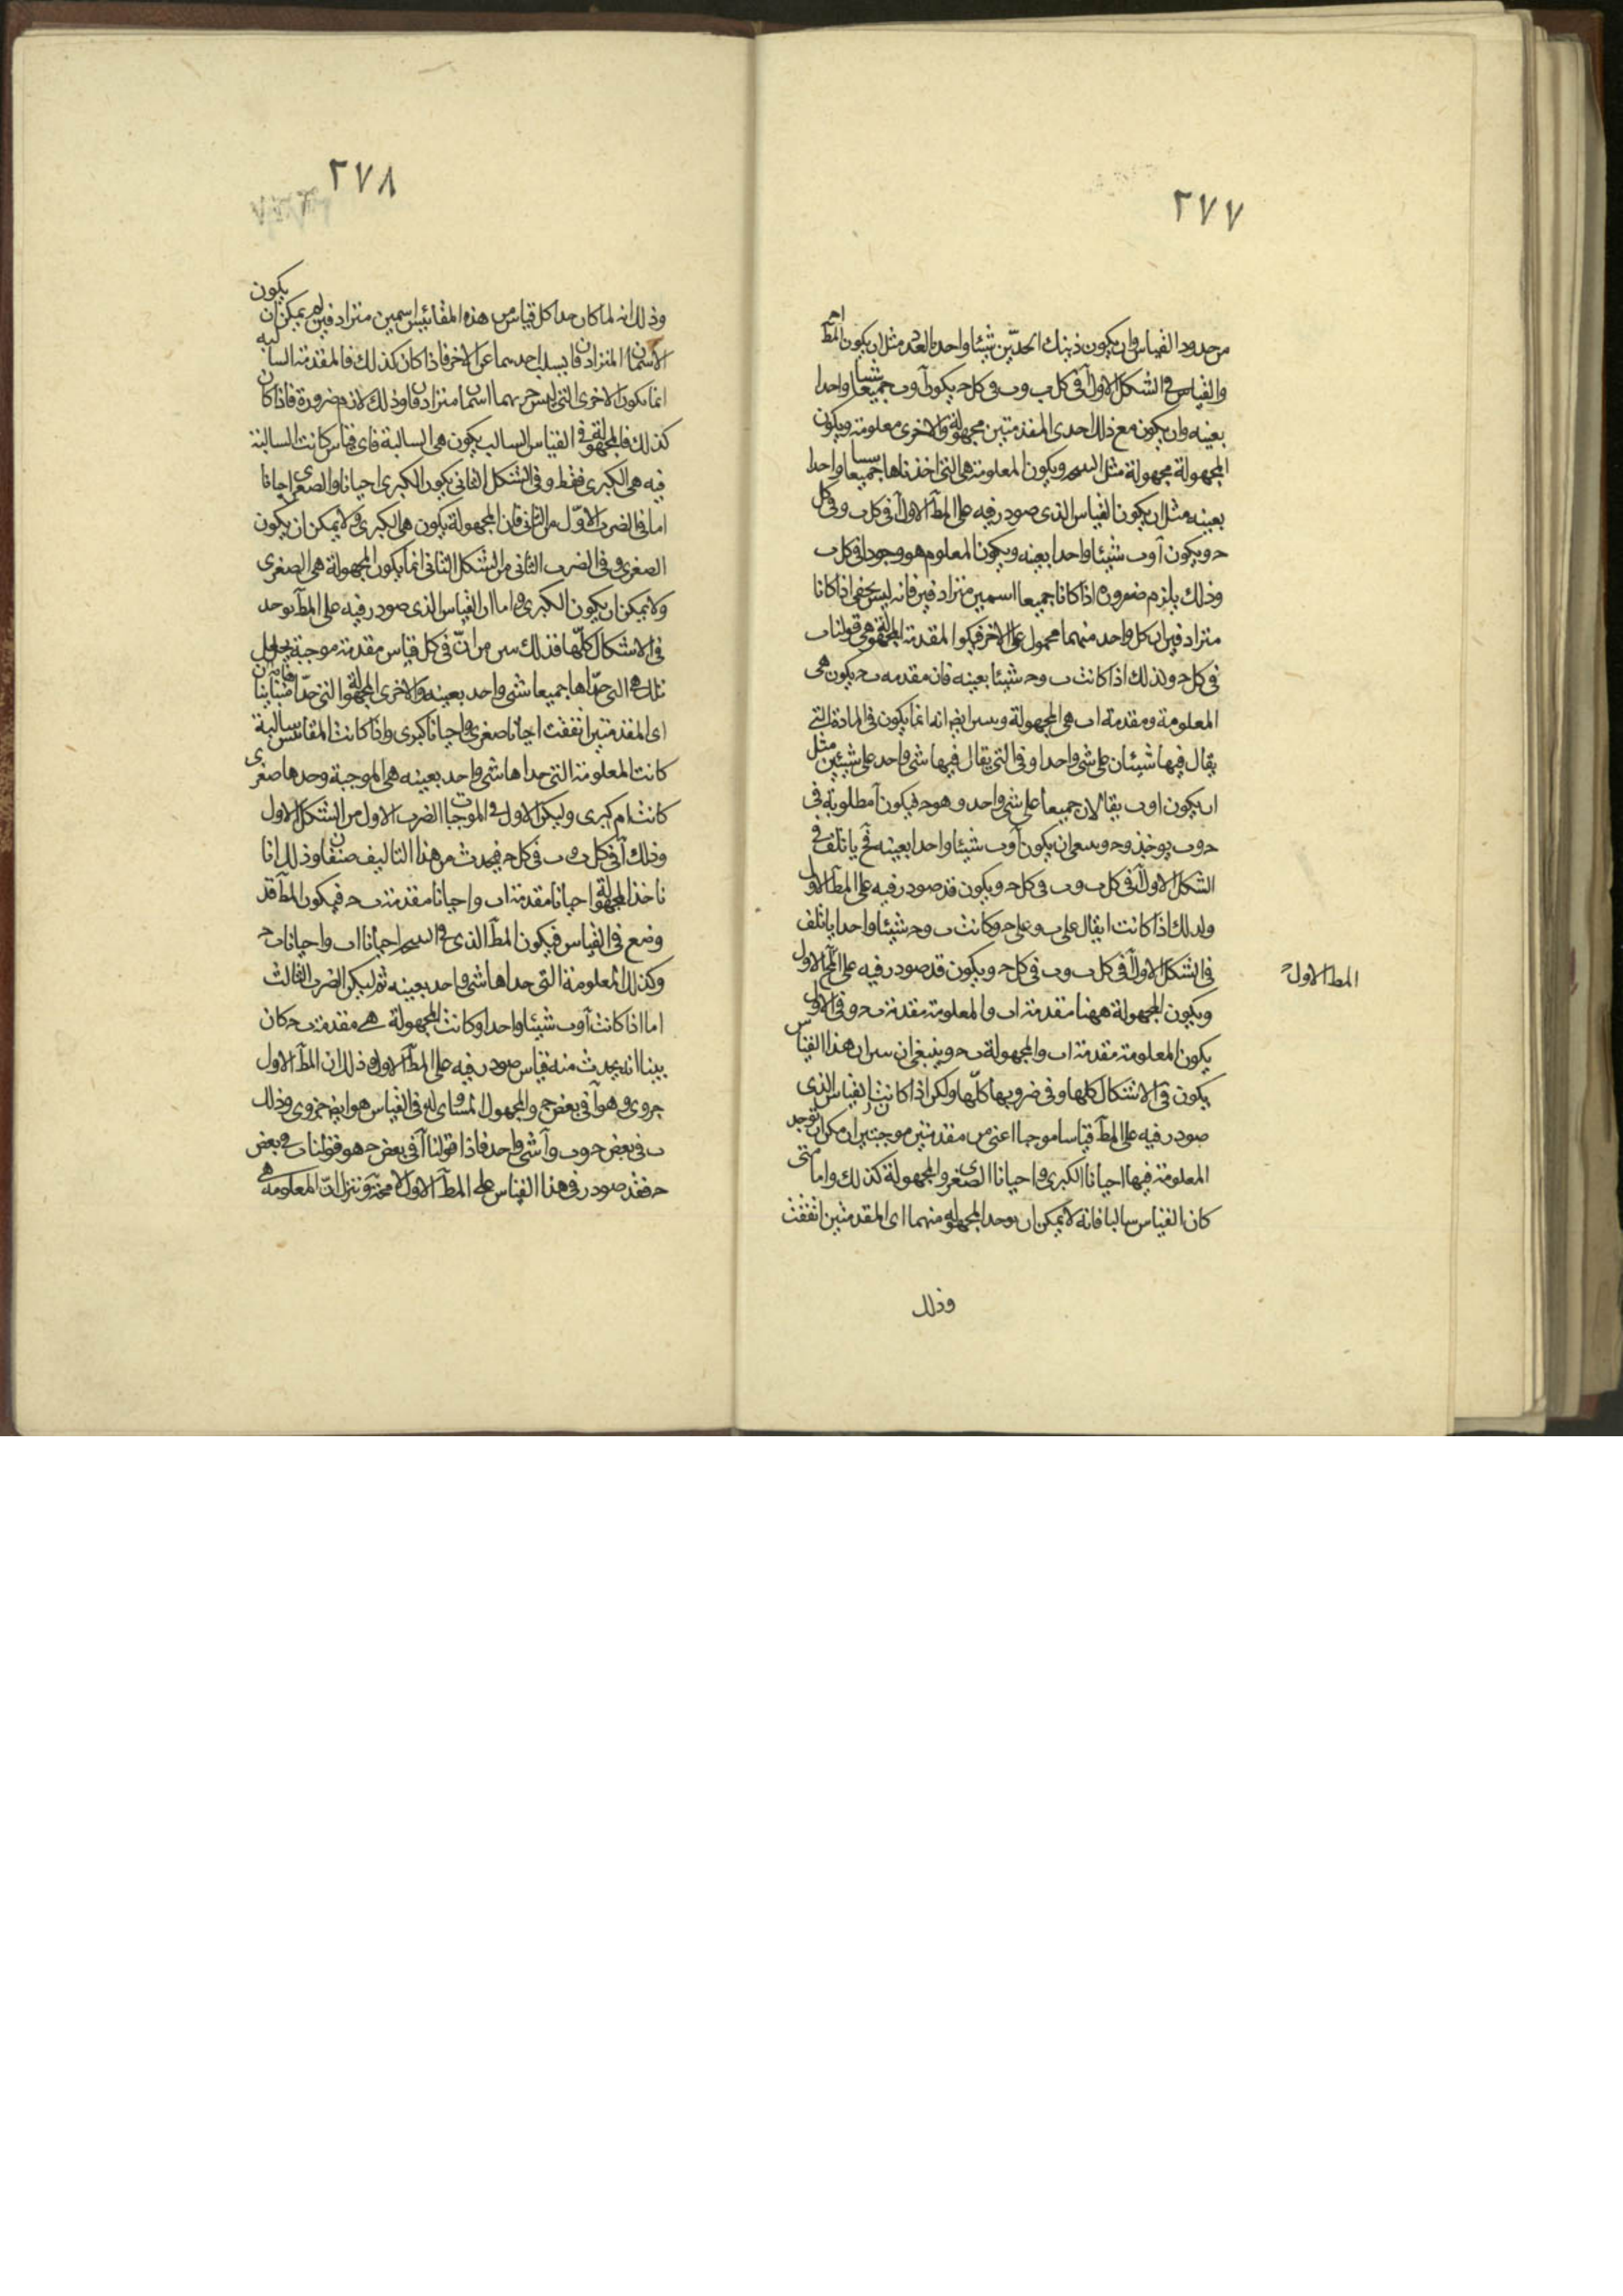 ٢٧٧
من حدود القياس وان يكون ذينك الحدّين شيئا واحدا بالعدد مثل ان يكون المط
والقياس في الشكل الاول آ في كل ب وب في كل ح يكون آ وب جميعا شيئا واحدا
بعينه وان يكون مع ذلك احدى المقدمتين مجهولة والاخرى معلومة ويكون
المجهولة مجهولة مثل ويكون المعلومة هي التي اخذناها جميعا واحدا
بعينه مثل ان يكون القياس الذي صودر فيه على المطَ الاول آ في كل ب وفي كل
ح ويكون آ وب شيئا واحدا بعينه ويكون المعلوم هو وجود ا في كل ب
وذلك يلزم ضرورة اذا كانا جميعا اسمين مترادفين فانه ليس يخفى اذا كانا
مترادفين ان كل واحد منهما محمول على الاخر فيكون المقدمة المجهولة هي قولنا ب
في كل ح وكذلك اذا كانت ب وح شيئا بعينه فان مقدمه ب ح يكون هي
المعلومة ومقدمة اب هي المجهولة وايضا انه انما يكون في المادة التي
يقال فيها شيئان على شي واحد او في التي يقال فيها شي واحد على شيئين مثل
ان يكون ا وب يقالان جميعا على شي واحد وهو ح فيكون آ مطلوبة في
ح وب يوخذ وان يكون آ وب شيئا واحدا بعينه فح ياتلف في
الشكل الاول آ في كل ب وب في كل ح ويكون قد صودر فيه على المطَ الاول
وكذلك اذا كانت ا يقال على ب وعلى ح وكانت ب وح شيئا واحدا ياتلف
في الشكل الاول آ في كل ب وب في كل ح ويكون قد صودر فيه على الاول
المط الاول ح
ويكون المجهولة ههنا مقدمة اب والمعلومة مقدمة ب ح وفي الاول
يكون المعلومة مقدمة اب والمجهولة ب ح وينبغي ان ان هذا القياس
يكون في الاشكال كلها وفي ضروبها كلّها ولكن اذا كانت القياس الذي
صودر فيه على المطَ قياسا موجبا اعني من مقدمتين موجبتين امكن ان توجد
المعلومة فيها احيانا الكبرى واحيانا الصغرى والمجهولة كذلك واما متى
كان القياس سالبا فانه لا يمكن ان يوجد المجهوله منهما اى المقدمتين اتفقت
وذلك
٢٧٨
وذلك انه لما كان حدا كل قياس من هذه المقائيس اسمين مترادفين لم يمكن ان يكون
الاسمان المترادفان يسلب احدهما عن الاخر فاذا كان كذلك فالمقدمة السالبه
انما يكون الاخرى التي ليس جزءهما اسمان مترادفان وذلك لازم ضرورة فاذا كان
كذلك فالمجهولة في القياس السالب يكون هي السالبة فاى قياس كانت السالبة
فيه هي الكبرى فقط وفي الشكل الثاني يكون الكبرى احيانا والصغرى احيانا
اما في الضرب الاوّل من الثاني فان المجهولة يكون هي الكبرى ولا يمكن ان يكون
الصغرى وفي الضرب الثاني من الشكل الثاني انما يكون المجهولة هي الصغرى
ولا يمكن ان يكون الكبرى واما ان القياس الذي صودر فيه على المطَ يوجد
في الاشكال كلّها فذلك من انّ في كل قياس مقدمة موجبة
تلك هي التي حدّاها جميعا شي واحد بعينه والاخرى المجهولة التي حدّا متباينا
اى المقدمتين اتفقت احيانا صغرى واحيانا كبرى واذا كانت المقائيس سالبة
كانت المعلومة التي حداها شي واحد بعينه هي الموجبة وحدها صغرى
كانت ام كبرى وليكن الاول في الموجبات الضرب الاول من الشكل الاول
وذلك آ في كل ب وب في كل ح فيحدث من هذا التاليف صنفان وذلك انا
ناخذ المجهولة احيانا مقدمة اب واحيانا مقدمة ب ح فيكون المطَ قد
وضع في القياس فيكون المطَ الذي في احيانا اب واحيانا ب ح
وكذلك المعلومة التي حداها شي واحد بعينه ثم ليكن الضرب الثالث
اما اذا كانت آ وب شيئا واحدا وكانت المجهولة هي مقدمة ب ح كان
بينا انه يحدث منه قياس صودر فيه على المطَ الاول وذلك ان المطَ الاول
جزوى وهو آ في بعض ح والمجهول المساوى له في القياس هو ايضا جزوى وذلك
ب في بعض ح وب وآ شي واحد فاذا قولنا آ في بعض ح هو قولنا ب في بعض
ح فقد صودر في هذا القياس على المطَ الاول لا محة وننزل انّ المعلومه هي